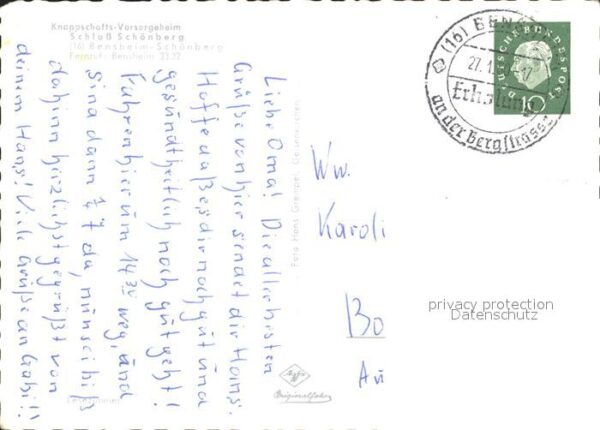 Knappschafts-Vorsorgeheim
Schloß Schönberg
(16) Bensheim-Schönberg
Fernruf: Bensheim 2322
Liebe Oma! Die allerbesten
Grüße von hier sendet dir Hans.
Hoffe daß es dir noch gut und
gesundheitlich noch gut geht!
Fahren hier um 14 weg, und
Sind dann 1/2 7 da, nun sei biß
dahin herzlichst gegrüßt von
deinem Hans! Viele Grüße an Gabi!!
Foto Hans Grempel, Gelsenkirchen
Agfa
Originalfoto
(16) BENSHEIM
27.1
17
Erholung
an der Bergstrasse
DEUTSCHE BUNDESPOST
10
Ww.
Karoli
Bo
Au
privacy protection
Datenschutz